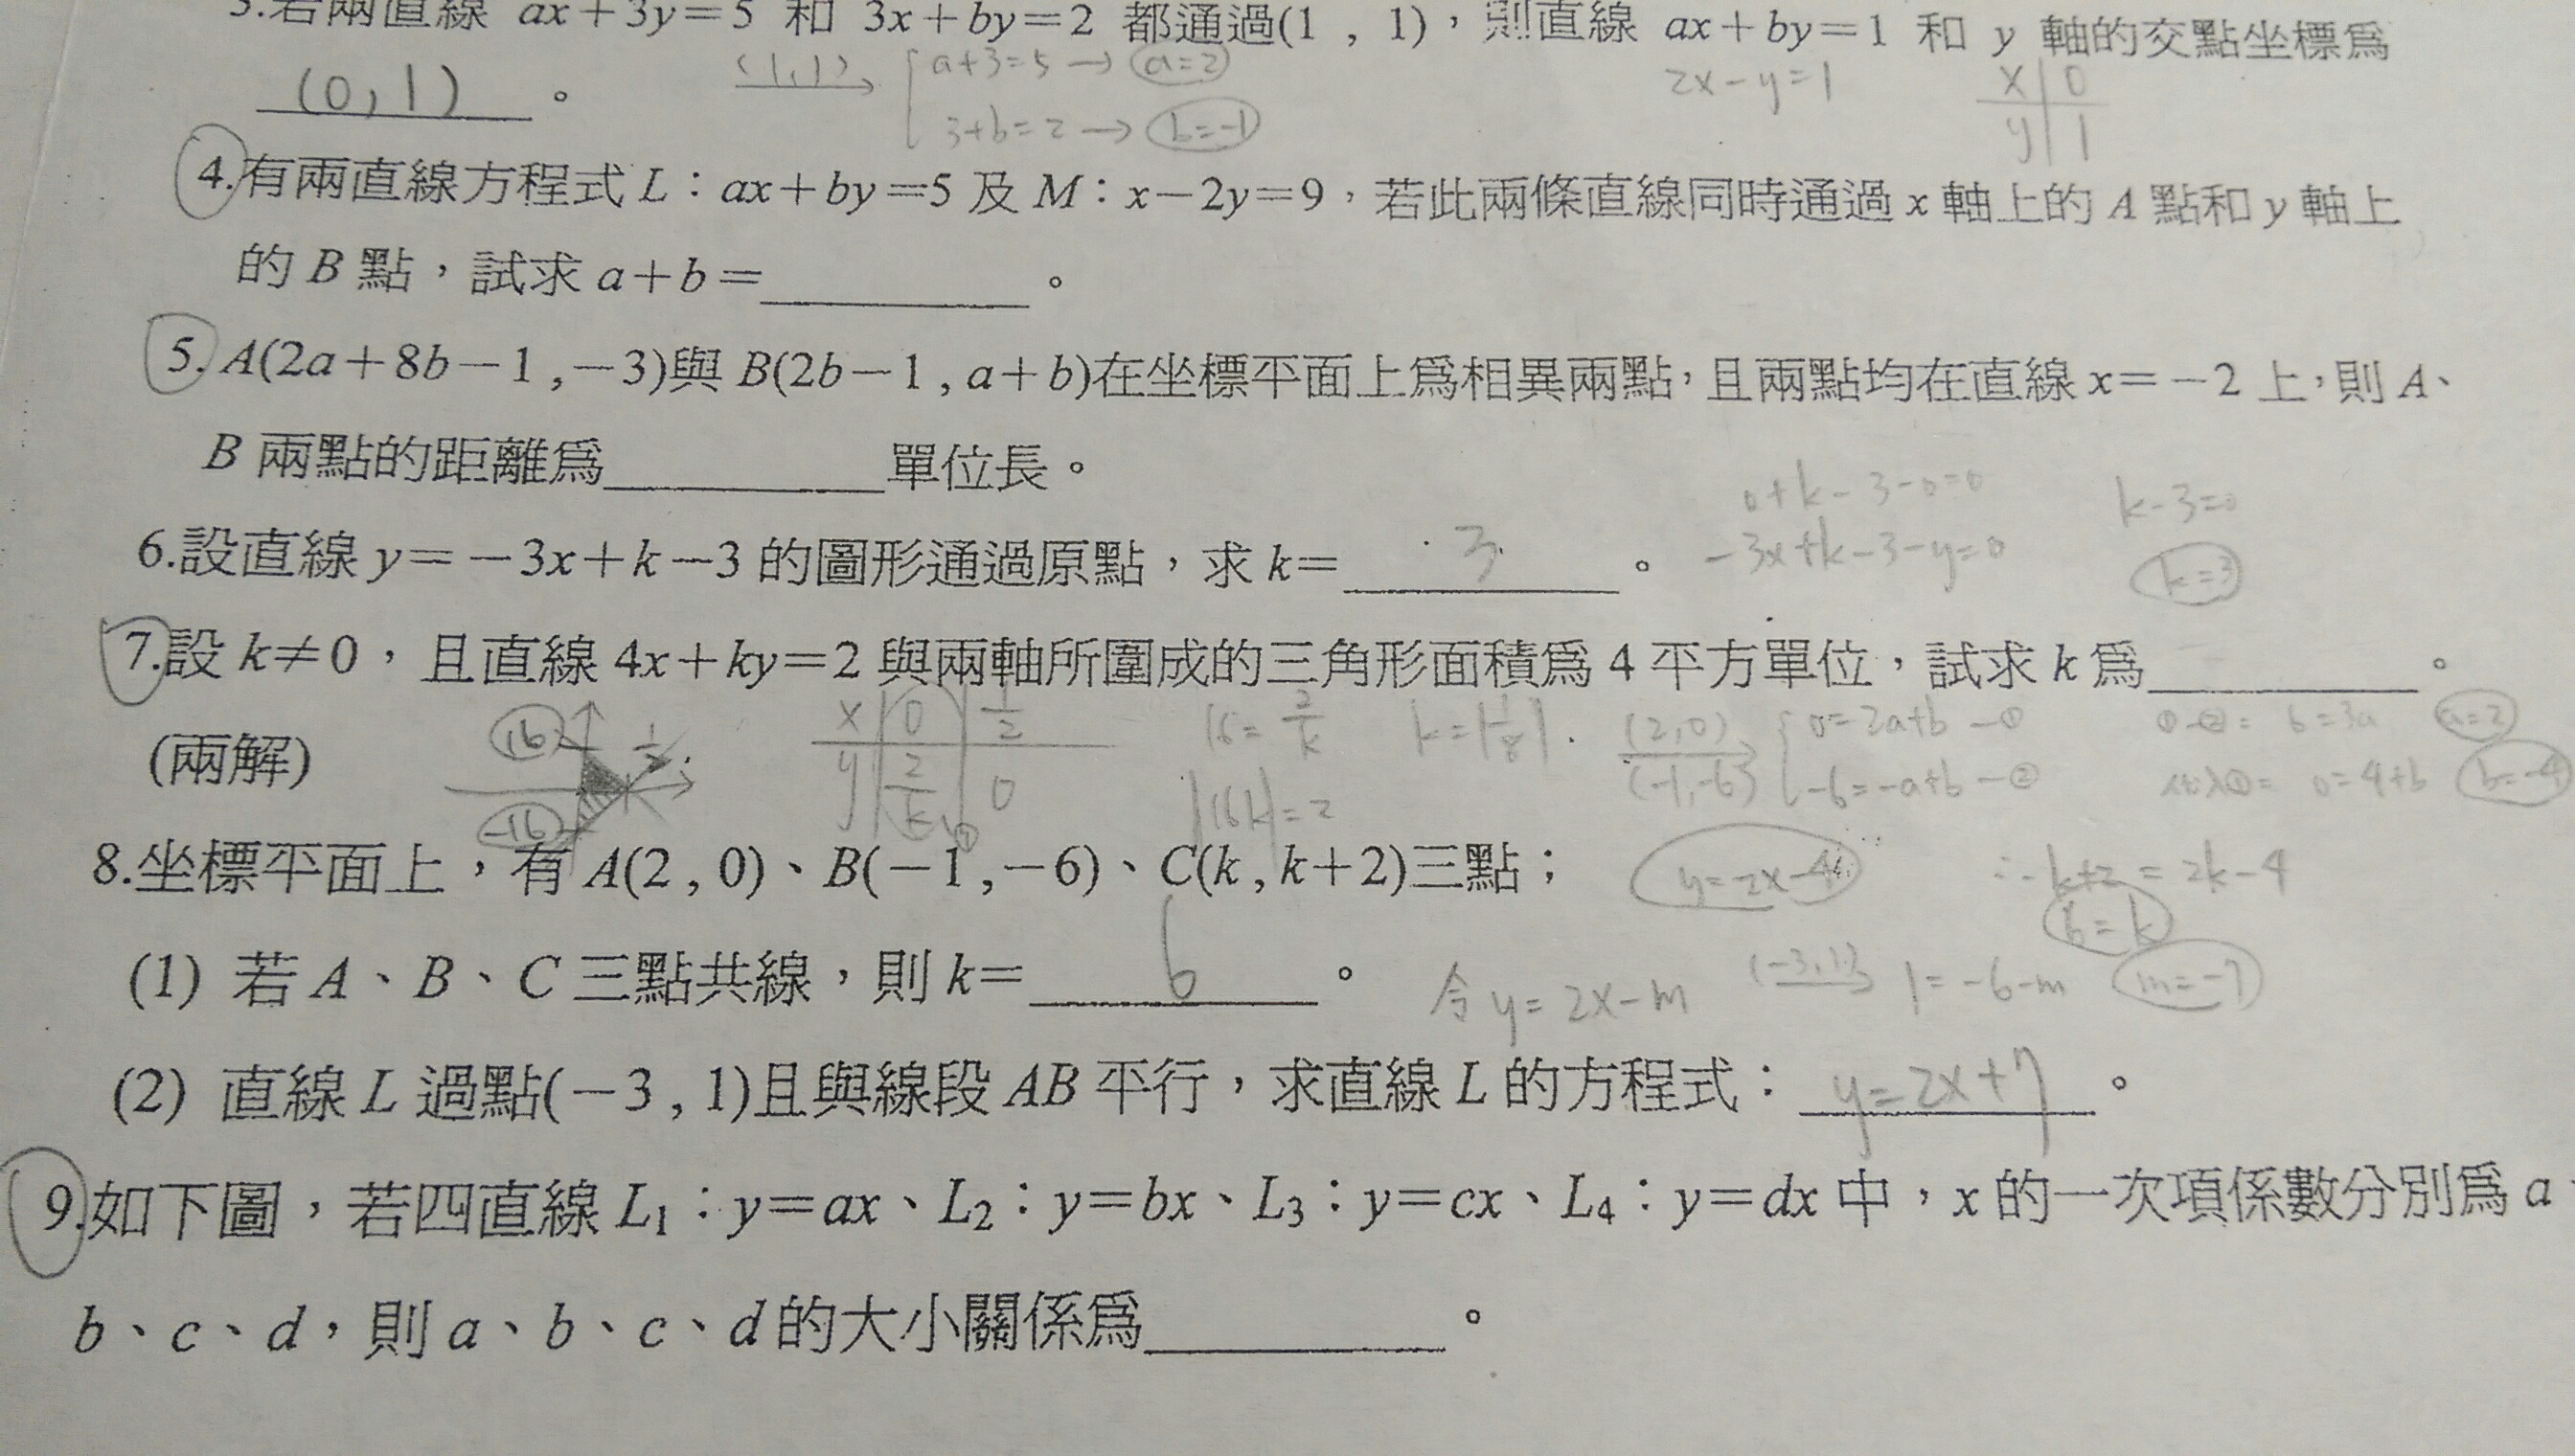 3.若兩直線 ax+3y=5 和 3x+by=2 都通過(1 , 1),則直線 ax+by=1 和 y 軸的交點坐標爲
(0,1)。
(1,1) a+3=5→a=2 2x-y=1 x 0
3+b=2→b=-1 y 1
4.有兩直線方程式 L:ax+by=5 及 M:x-2y=9,若此兩條直線同時通過 x 軸上的 A 點和 y 軸上
的 B 點,試求 a+b=。
5. A(2a+8b-1 ,-3)與 B(2b-1 , a+b)在坐標平面上爲相異兩點,且兩點均在直線 x=-2 上,則 A、
B 兩點的距離爲單位長。
0+k-3-0=0 k-3=0
6.設直線 y=-3x+k-3 的圖形通過原點,求 k= 3 。 -3x+k-3-y=0 k=3
7.設 k≠0,且直線 4x+ky=2 與兩軸所圍成的三角形面積爲 4 平方單位,試求 k 爲。
(兩解) 16 1/2 x 0 1/2 16=2/k k=|1/8| (2,0) 0=2a+b-① ①-②= 6=3a a=2
-16 y 2/k 0 |16k|=2 (-1,-6) -6=-a+b-② 0=4+b b=-4
8.坐標平面上,有 A(2 , 0)、B(-1 ,-6)、C(k , k+2)三點; y=2x-4 ∴k+2=2k-4
6=k
(1) 若 A、B、C 三點共線,則 k= 6 。 令 y=2x-m (-3,1) 1=-6-m m=-7
(2) 直線 L 過點(-3 , 1)且與線段 AB 平行,求直線 L 的方程式: y=2x+7 。
9.如下圖,若四直線 L1:y=ax、L2:y=bx、L3:y=cx、L4:y=dx 中,x 的一次項係數分別爲 a
b、c、d,則 a、b、c、d 的大小關係爲。